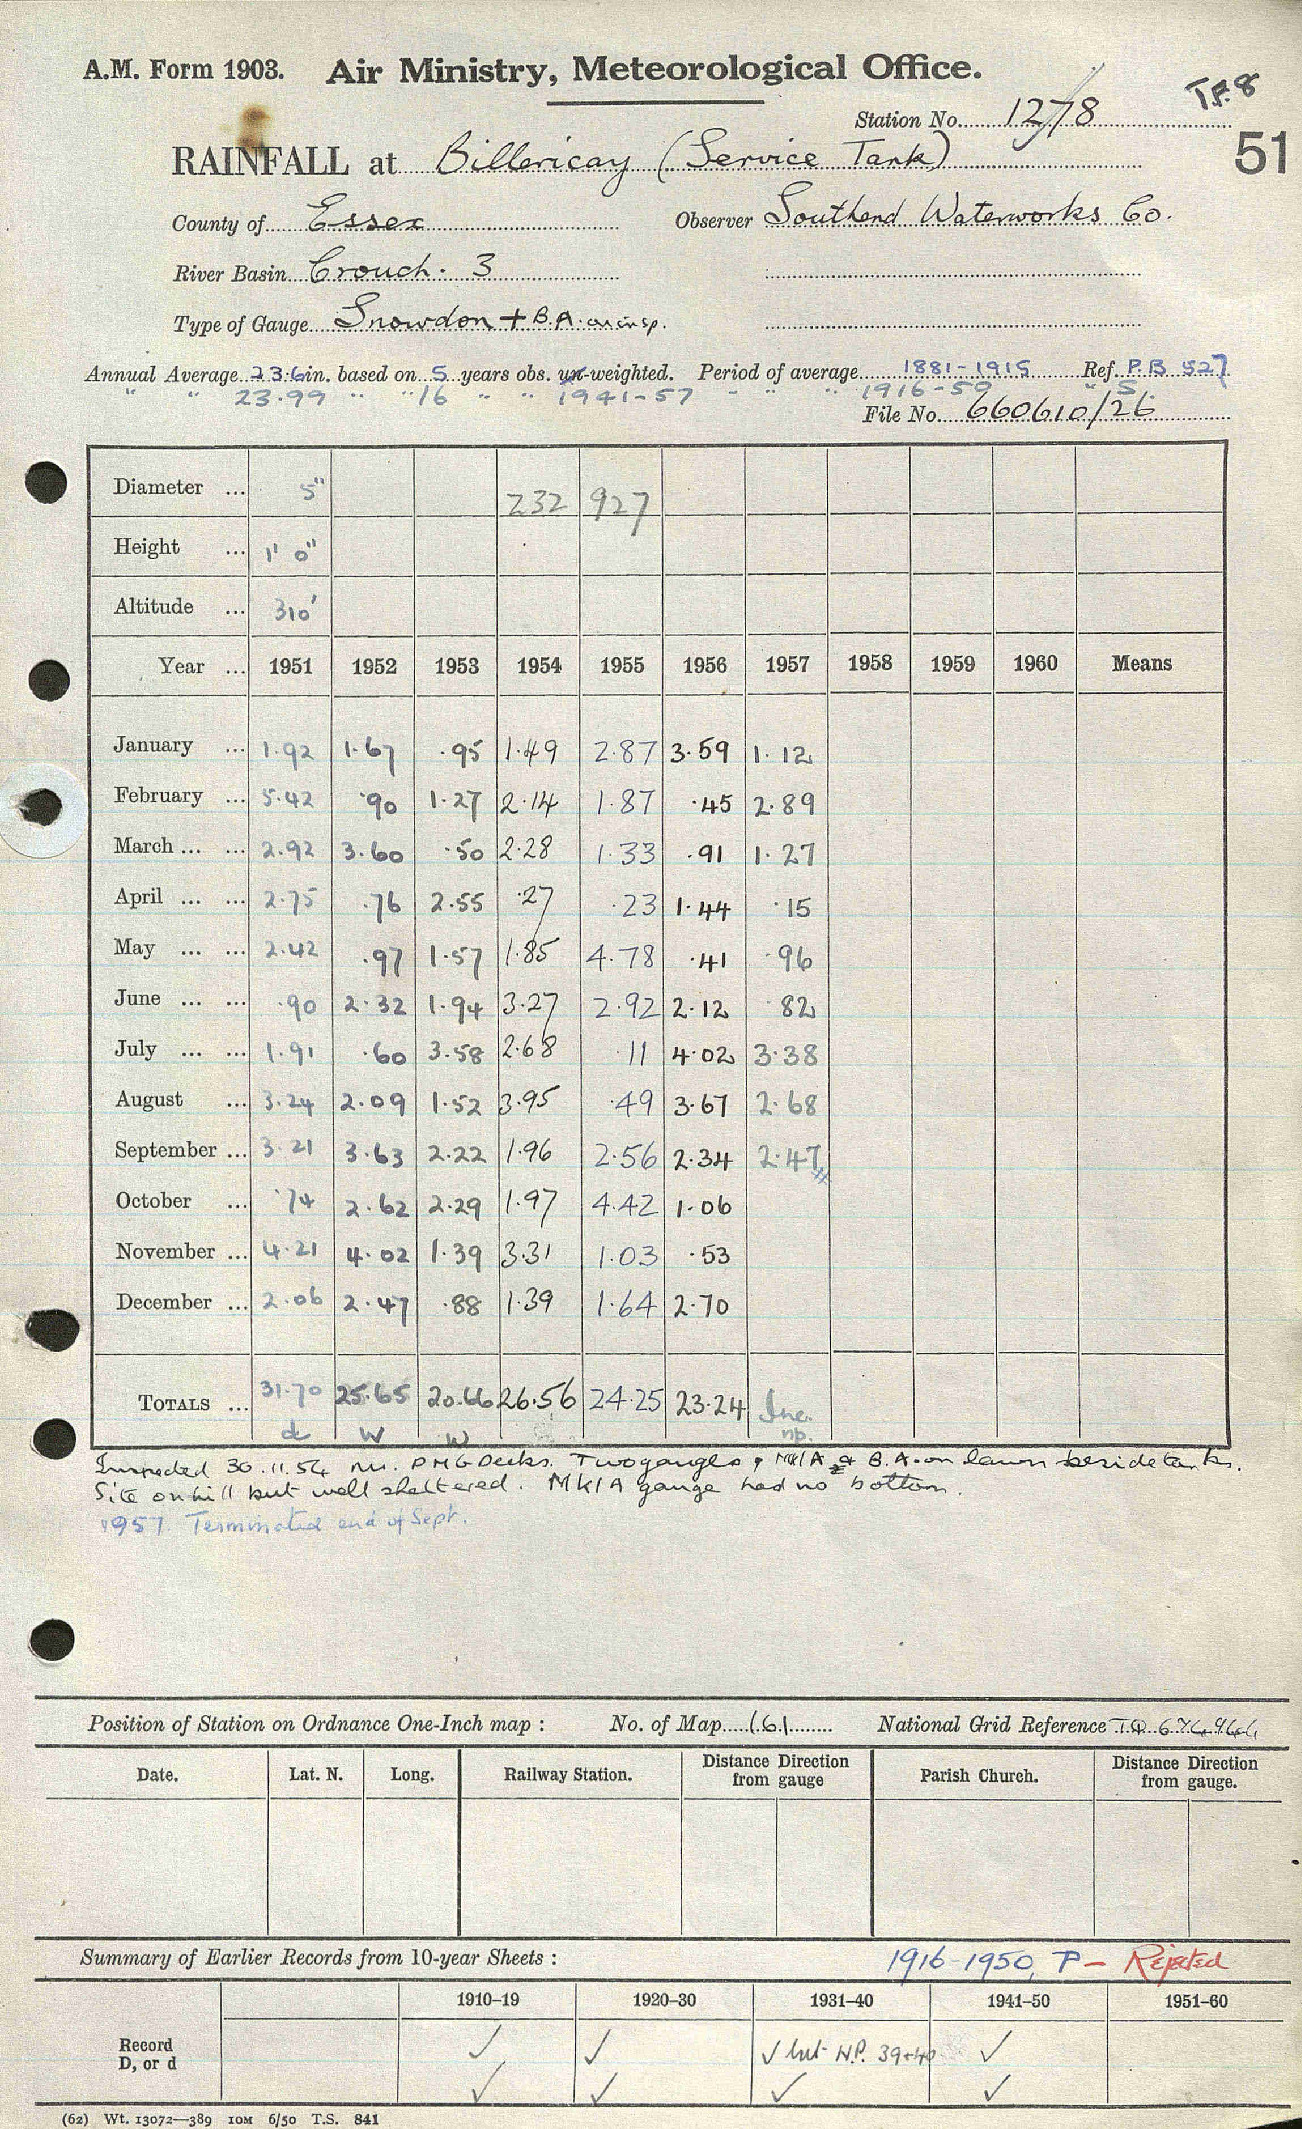 A.M. Form 1903. Air Ministry, Meteorological Office.
T.F.8
Station No. 1278
51
RAINFALL at Billericay (Service Tank)
County of Essex Observer Southend Waterworks Co.
River Basin Crouch. 3
Type of Gauge Snowdon + B.A. on insp.
Annual Average 23.6 in. based on 5 years obs. un-weighted. Period of average 1881-1915 Ref. P.B 527
" " 23.99 " " 16 " " 1941-57 - " " 1916-50 " S.
File No. 660610/26
Diameter ... 5" 232 927
Height ... 1' 0"
Altitude ... 310'
Year ... 1951 1952 1953 1954 1955 1956 1957 1958 1959 1960 Means
January ... 1.92 1.67 .95 1.49 2.87 3.59 1.12
February ... 5.42 .90 1.27 2.14 1.87 .45 2.89
March ... ... 2.92 3.60 .50 2.28 1.33 .91 1.27
April ... ... 2.75 .76 2.55 .27 .23 1.44 .15
May ... ... 2.42 .97 1.57 1.85 4.78 .41 .96
June ... ... .90 2.32 1.94 3.27 2.92 2.12 .82
July ... ... 1.91 .60 3.58 2.68 .11 4.02 3.38
August ... 3.24 2.09 1.52 3.95 .49 3.67 2.68
September ... 3.21 3.63 2.22 1.96 2.56 2.34 2.47
October ... .74 2.62 2.29 1.97 4.42 1.06
November ... 4.21 4.02 1.39 3.31 1.03 .53
December ... 2.06 2.47 .88 1.39 1.64 2.70
TOTALS ... 31.70 25.65 20.66 26.56 24.25 23.24 Inc.
d W W np.
Inspected 30.11.54 Mr. P M G Decks. Two gauges, MK1A & B.A. on lawn beside tanks.
Site on hill but well sheltered. MK1A gauge had no bottom.
1957. Terminated end of Sept.
Position of Station on Ordnance One-Inch map : No. of Map 161 National Grid Reference TQ 674944
Date. Lat. N. Long. Railway Station. Distance Direction from gauge Parish Church. Distance Direction from gauge.
Summary of Earlier Records from 10-year Sheets : 1916-1950, P - Rejected
1910–19 1920–30 1931–40 1941–50 1951–60
Record ✓ ✓ ✓ but N.P. 39+40 ✓
D, or d ✓ ✓ ✓ ✓
(62) Wt. 13072—389 10M 6/50 T.S. 841